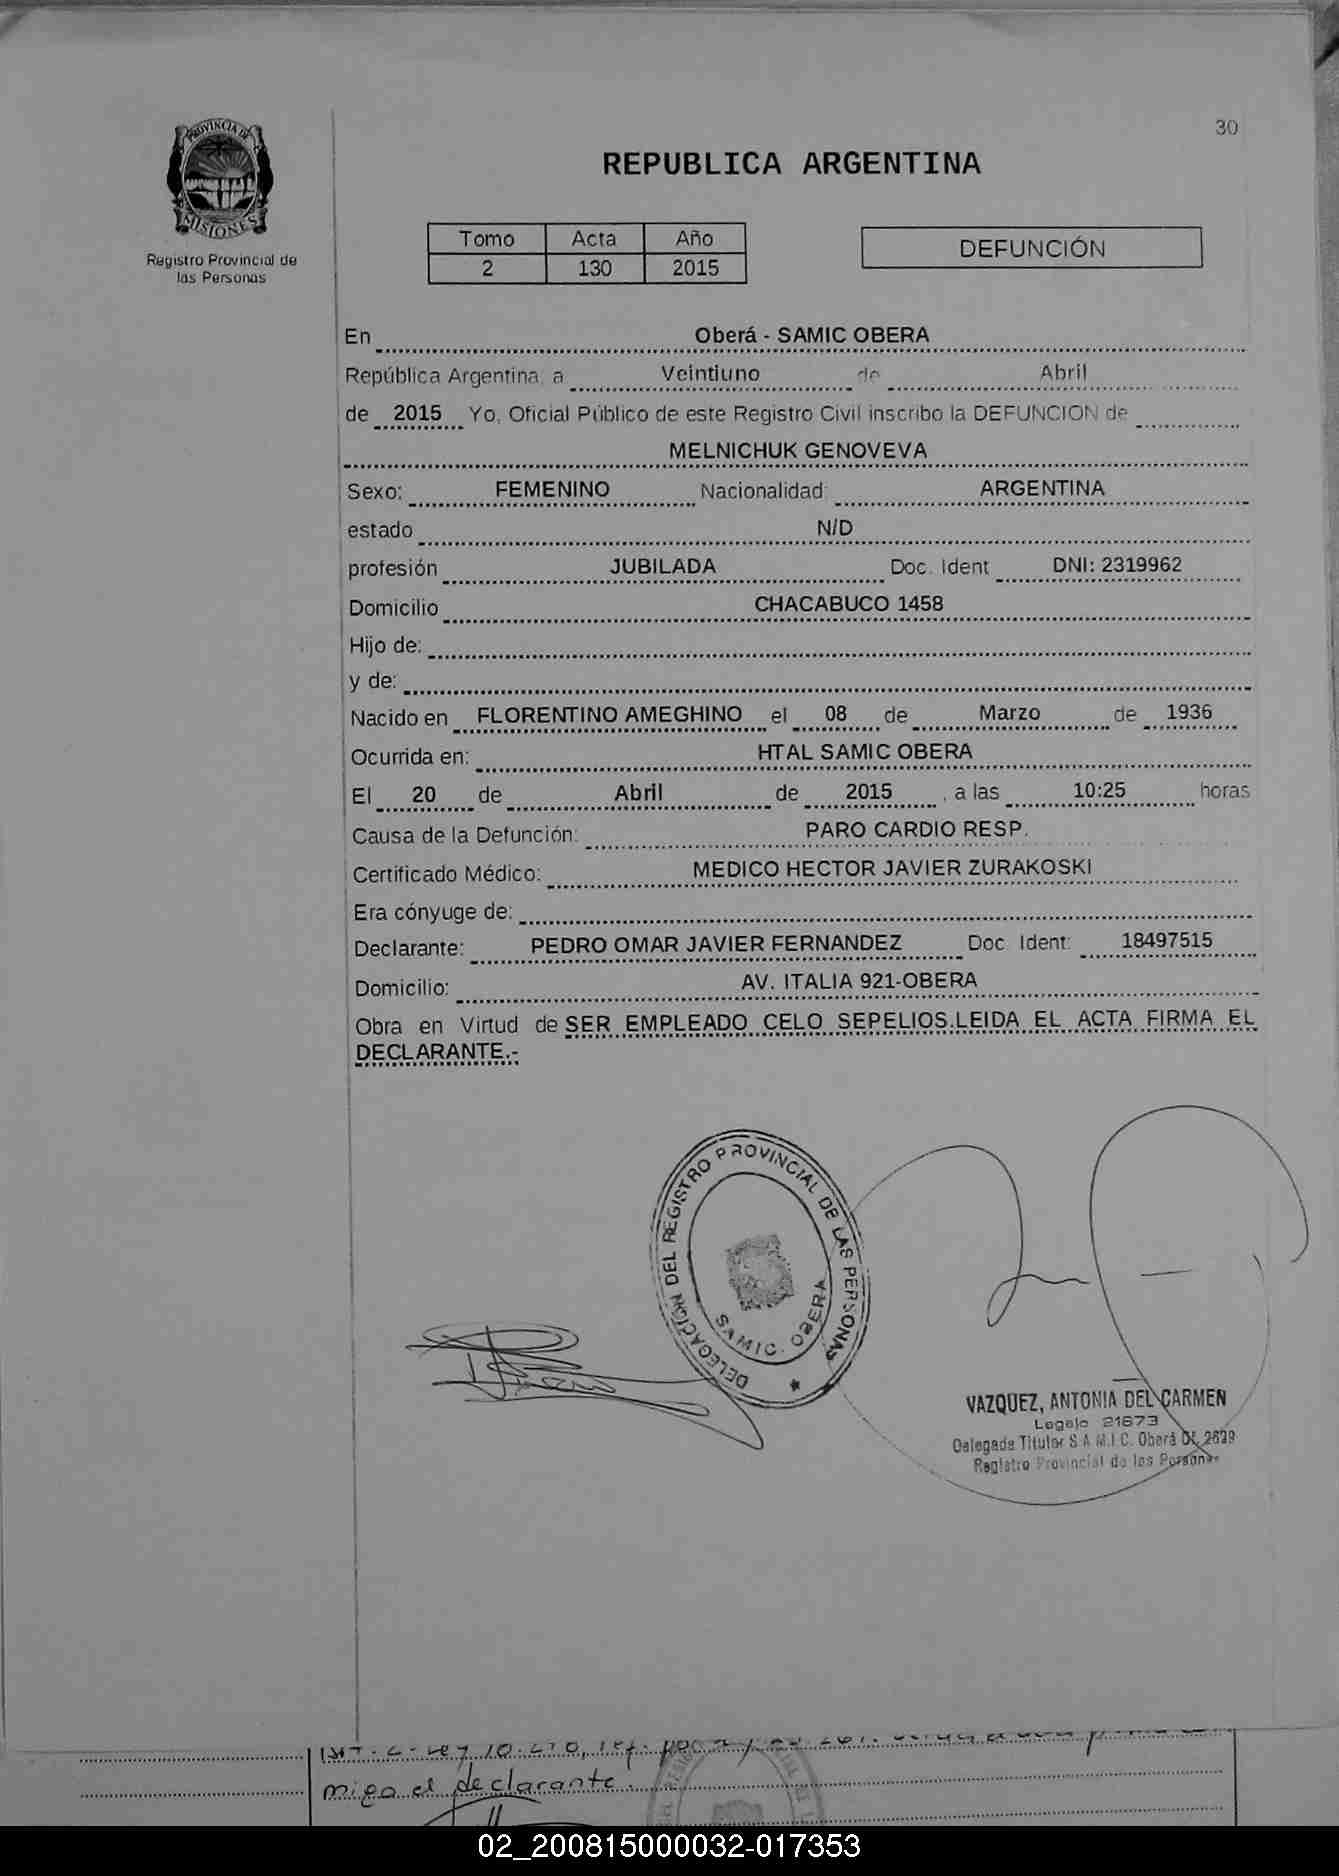 30
PROVINCIA DE
MISIONES
Registro Provincial de
las Personas
REPUBLICA ARGENTINA
Tomo Acta Año
2 130 2015
DEFUNCIÓN
En Oberá - SAMIC OBERA
República Argentina, a Veintiuno de Abril
de 2015 Yo, Oficial Público de este Registro Civil inscribo la DEFUNCION de
MELNICHUK GENOVEVA
Sexo: FEMENINO Nacionalidad: ARGENTINA
estado N/D
profesión JUBILADA Doc. Ident DNI: 2319962
Domicilio CHACABUCO 1458
Hijo de:
y de:
Nacido en FLORENTINO AMEGHINO el 08 de Marzo de 1936
Ocurrida en: HTAL SAMIC OBERA
El 20 de Abril de 2015, a las 10:25 horas
Causa de la Defunción: PARO CARDIO RESP.
Certificado Médico: MEDICO HECTOR JAVIER ZURAKOSKI
Era cónyuge de:
Declarante: PEDRO OMAR JAVIER FERNANDEZ Doc. Ident: 18497515
Domicilio: AV. ITALIA 921-OBERA
Obra en Virtud de SER EMPLEADO CELO SEPELIOS.LEIDA EL ACTA FIRMA EL
DECLARANTE.-
DELEGACIÓN DEL REGISTRO PROVINCIAL DE LAS PERSONAS
SAMIC. OBERA
VAZQUEZ, ANTONIA DEL CARMEN
Legajo 21673
Delegada Titular S.A.M.I.C. Oberá Of. 2639
Registro Provincial de las Personas
migo el declarante.
02_200815000032-017353